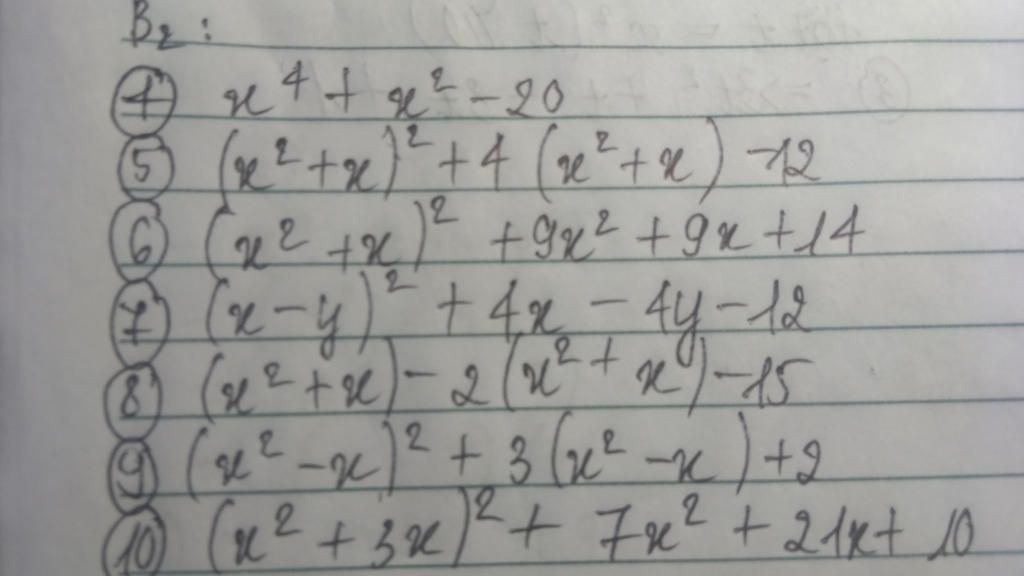 B₂:
④ x⁴ + x² - 20
⑤ (x² + x)² + 4 (x² + x) - 12
⑥ (x² + x)² + 9x² + 9x + 14
⑦ (x - y)² + 4x - 4y - 12
⑧ (x² + x) - 2 (x² + x) - 15
⑨ (x² - x)² + 3 (x² - x) + 2
⑩ (x² + 3x)² + 7x² + 21x + 10